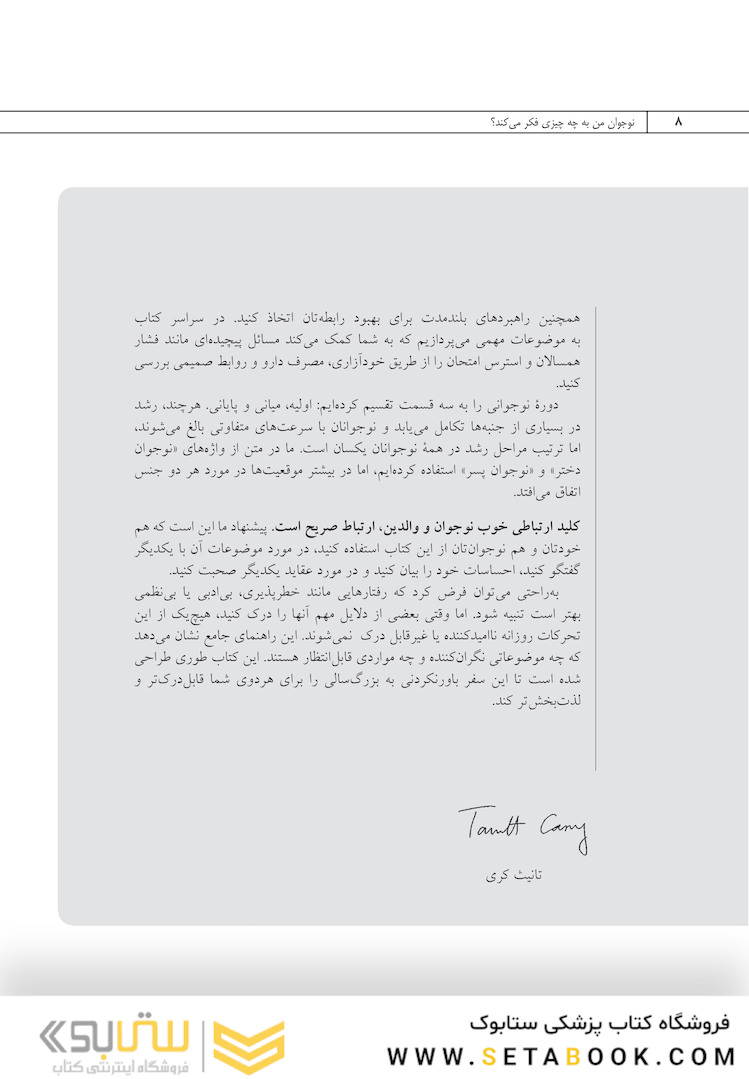 ۸ نوجوان من به چه چیزی فکر می‌کند؟
همچنین راهبردهای بلندمدت برای بهبود رابطه‌تان اتخاذ کنید. در سراسر کتاب
به موضوعات مهمی می‌پردازیم که به شما کمک می‌کند مسائل پیچیده‌ای مانند فشار
همسالان و استرس امتحان را از طریق خودآزاری، مصرف دارو و روابط صمیمی بررسی
کنید.
دورهٔ نوجوانی را به سه قسمت تقسیم کرده‌ایم: اولیه، میانی و پایانی. هرچند، رشد
در بسیاری از جنبه‌ها تکامل می‌یابد و نوجوانان با سرعت‌های متفاوتی بالغ می‌شوند،
اما ترتیب مراحل رشد در همهٔ نوجوانان یکسان است. ما در متن از واژه‌های «نوجوان
دختر» و «نوجوان پسر» استفاده کرده‌ایم، اما در بیشتر موقعیت‌ها در مورد هر دو جنس
اتفاق می‌افتد.
کلید ارتباطی خوب نوجوان و والدین، ارتباط صریح است. پیشنهاد ما این است که هم
خودتان و هم نوجوان‌تان از این کتاب استفاده کنید، در مورد موضوعات آن با یکدیگر
گفتگو کنید، احساسات خود را بیان کنید و در مورد عقاید یکدیگر صحبت کنید.
به‌راحتی می‌توان فرض کرد که رفتارهایی مانند خطرپذیری، بی‌ادبی یا بی‌نظمی
بهتر است تنبیه شود. اما وقتی بعضی از دلایل مهم آنها را درک کنید، هیچ‌یک از این
تحرکات روزانه ناامیدکننده یا غیرقابل درک نمی‌شوند. این راهنمای جامع نشان می‌دهد
که چه موضوعاتی نگران‌کننده و چه مواردی قابل‌انتظار هستند. این کتاب طوری طراحی
شده است تا این سفر باورنکردنی به بزرگ‌سالی را برای هردوی شما قابل‌درک‌تر و
لذت‌بخش‌تر کند.
تانیث کری
فروشگاه کتاب پزشکی ستابوک
WWW.SETABOOK.COM
ستابوک
فروشگاه اینترنتی کتاب